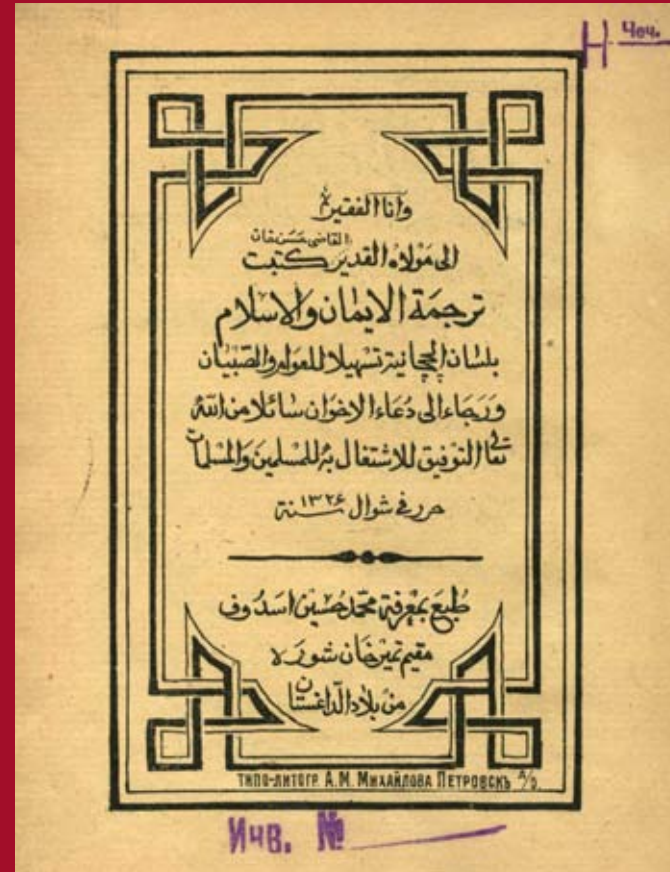 Н Чеч.
وانا الفقير
الى مولاه القدير القاضى حسن كتبت
ترجمة الايمان والاسلام
بلسان الچچانية تسهيلا للعوام والصبيان
ورجاء الى دعاء الاخوان سائلا من الله
تعالى التوفيق للاشتغال به للمسلمين والمسلمات
حرر فى شوال سنة ١٣٢٦
طبع بمعرفة محمد حسين اسدوف
مقيم تمير خان شوره
من بلاد الداغستان
ТИПО-ЛИТОГР. А. М. МИХАЙЛОВА ПЕТРОВСКЪ Д/О.
Инв. №